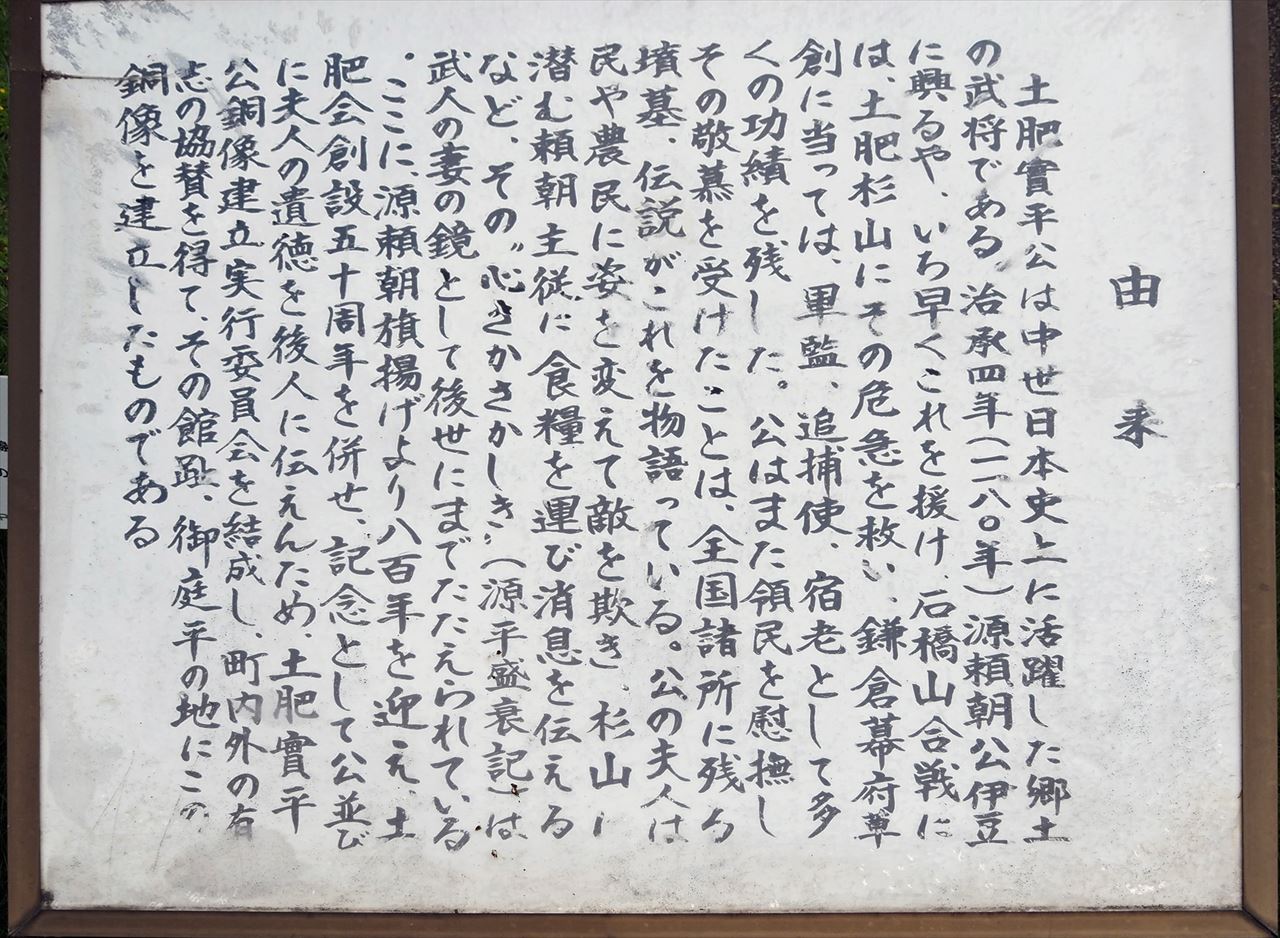 由来
土肥實平公は中世日本史上に活躍した郷土
の武将である。治承四年(一一八〇年)源頼朝公伊豆
に興るや、いち早くこれを援け、石橋山合戦に
は、土肥杉山にその危急を救い、鎌倉幕府草
創に当っては、軍監、追捕使、宿老として多
くの功績を残した。公はまた領民を慰撫し
その敬慕を受けたことは、全国諸所に残る
墳墓、伝説がこれを物語っている。公の夫人は
民や農民に姿を変えて敵を欺き、杉山に
潜む頼朝主従に食糧を運び消息を伝える
など、その〝心さかさかしき〟(源平盛衰記)は
武人の妻の鏡として後世にまでたたえられている
。ここに、源頼朝旗揚げより八百年を迎え、土
肥会創設五十周年を併せ、記念として公並び
に夫人の遺徳を後人に伝えんため、土肥實平
公銅像建立実行委員会を結成し、町内外の有
志の協賛を得て、その館趾、御庭平の地にこの
銅像を建立したものである